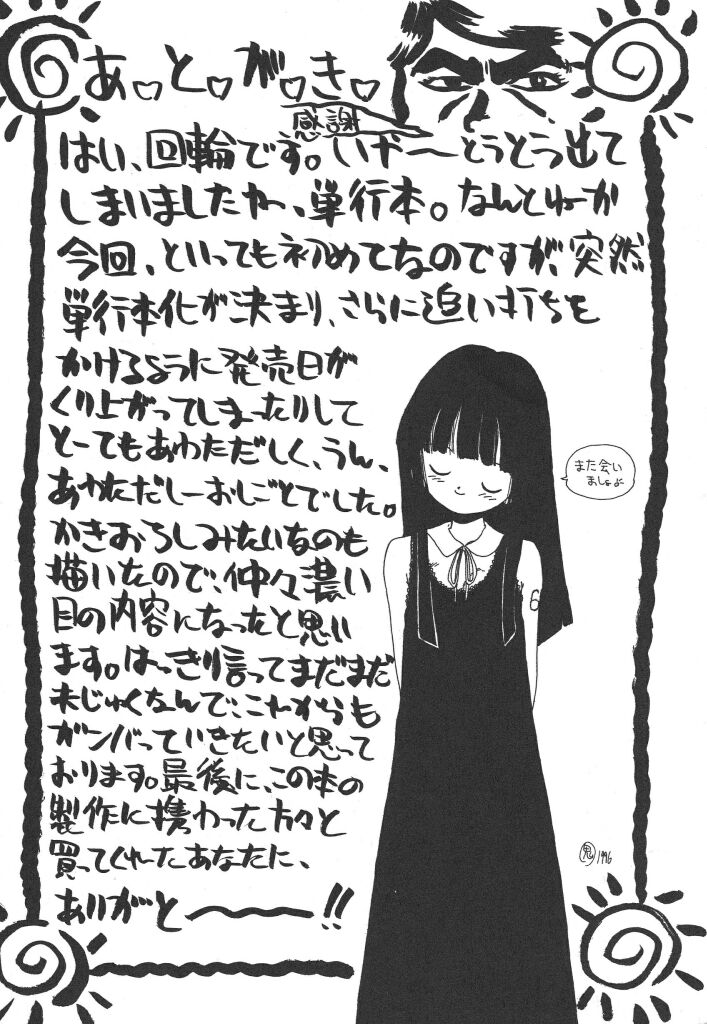 あ♡と♡が♡き♡
感謝
はい、回輪です。いや〜とうとう出て
しまいましたや〜、単行本。なんとゆーか
今回、といっても初めてなのですが、突然
単行本化が決まり、さらに追い打ちを
かけるように発売日が
くり上がってしまったりして
とーてもあわただしく、うん、
あわただしーおしごとでした。
かきおろしみたいなのも
描いたので、仲々濃い
目の内容になったと思い
ます。はっきり言ってまだまだ
未じゅくなんで、これからも
ガンバっていきたいと思って
おります。最後に、この本の
製作に携わった方々と
買ってくれたあなたに、
ありがと〜!!
また会い
ましょよ
6
鬼 1996